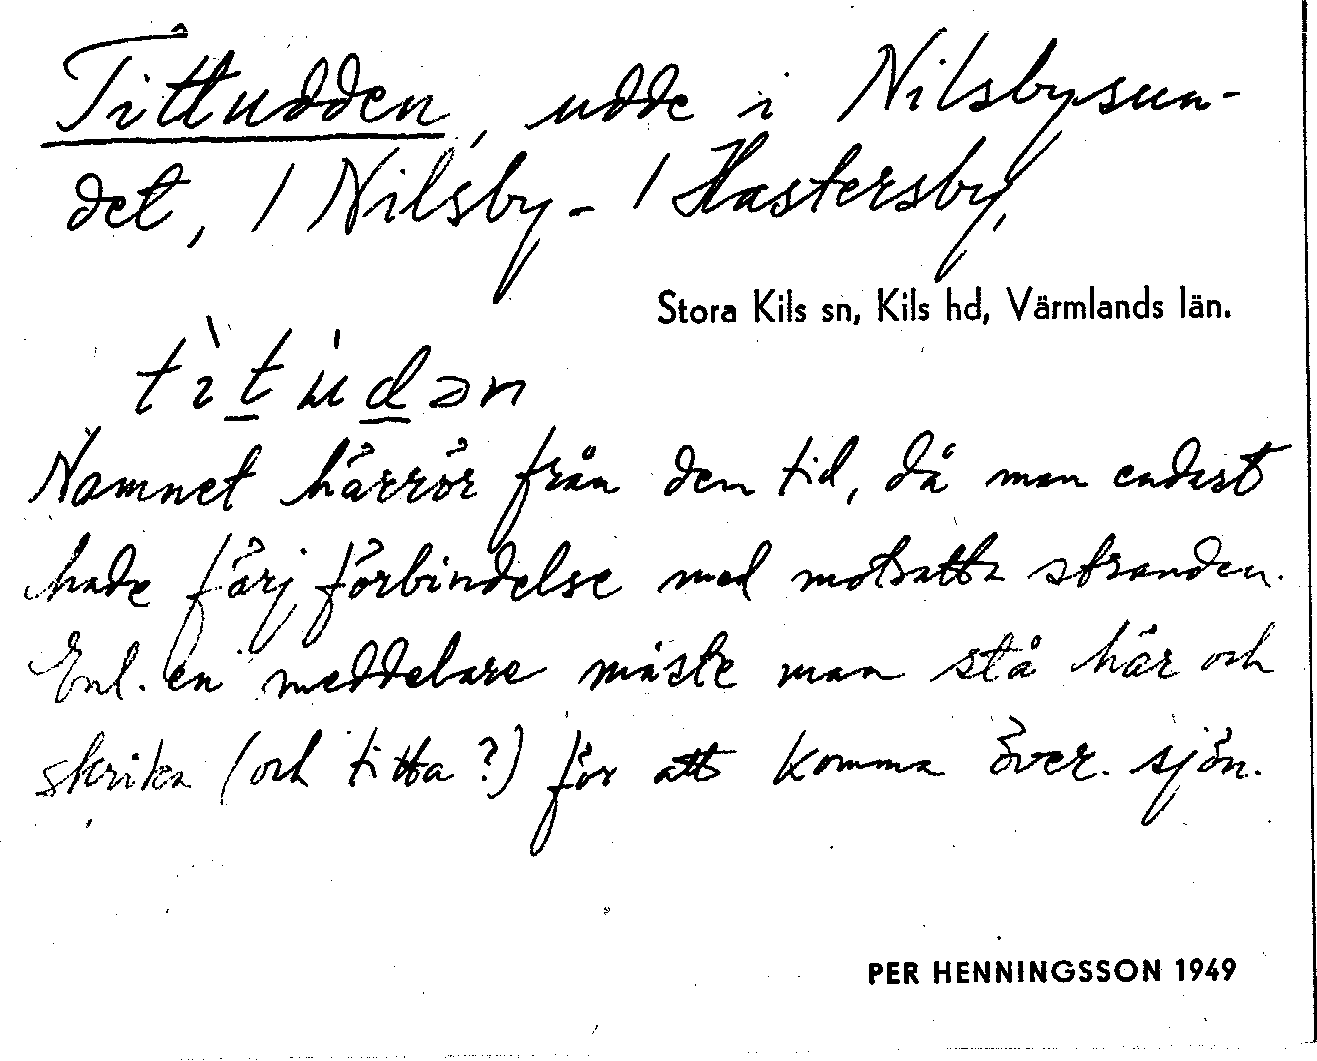 Tittudden, udde i Nilsbysun-
det, / Nilsby - / Hastersby,
Stora Kils sn, Kils hd, Värmlands län.
tìtúdən
Namnet härrör från den tid, då man endast
hade färj förbindelse med motsatta stranden.
Enl. en meddelare måste man stå här och
skrika (och titta?) för att komma över sjön.
PER HENNINGSSON 1949